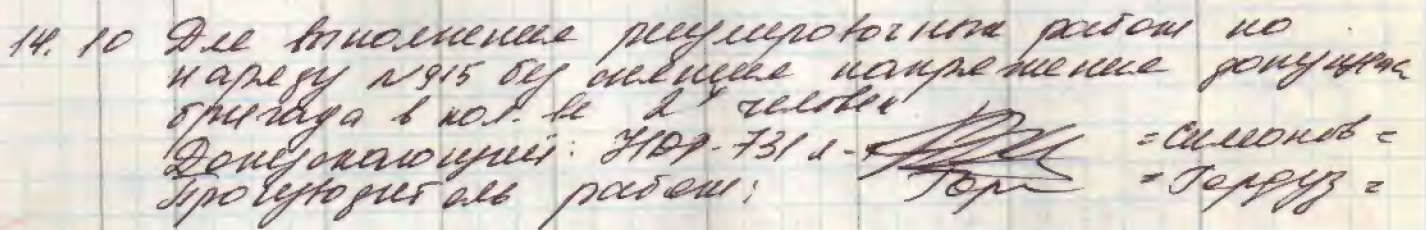 14.10 Для выполнения регулировочных работ по
наряду №915 без снятия напряжения допущена
бригада в кол. ве 2х человек
Допускающий: =Симонов=
Производитель работ: Гор =Гордуз=